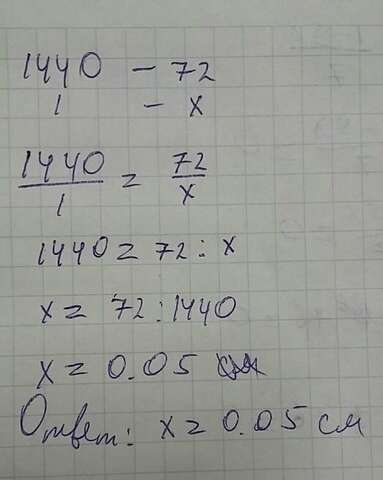 1440 - 72
1 - x
1440/1 = 72/x
1440 = 72 : x
x = 72 : 1440
x = 0.05
Ответ: x = 0.05 см